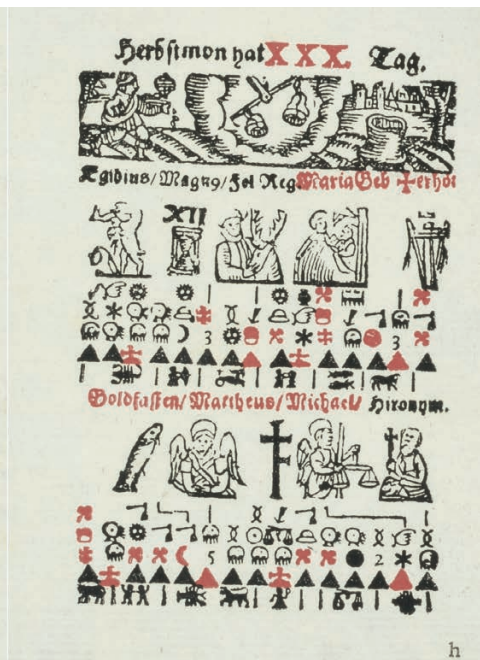 Herbstmon hat XXX. Tag.
Egidius/Magn9/Fel Reg Maria Geb ✠erhöt
XII
3 3
Goldfasten/Mattheus/Michael/Hironym.
5 2
h